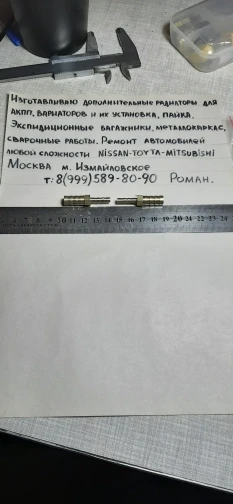 Изготавливаю дополнительные радиаторы для
АКПП, вариаторов и их установка, пайка.
Экспидиционные багажники, металокаркас,
сварочные работы. Ремонт автомобилей
любой сложности NISSAN-TOYTA-MITSUBISHI
Москва м. Измайловское
т: 8(999)589-80-90 Роман.
10 11 12 13 14 15 16 17 18 19 20 21 22 23 24